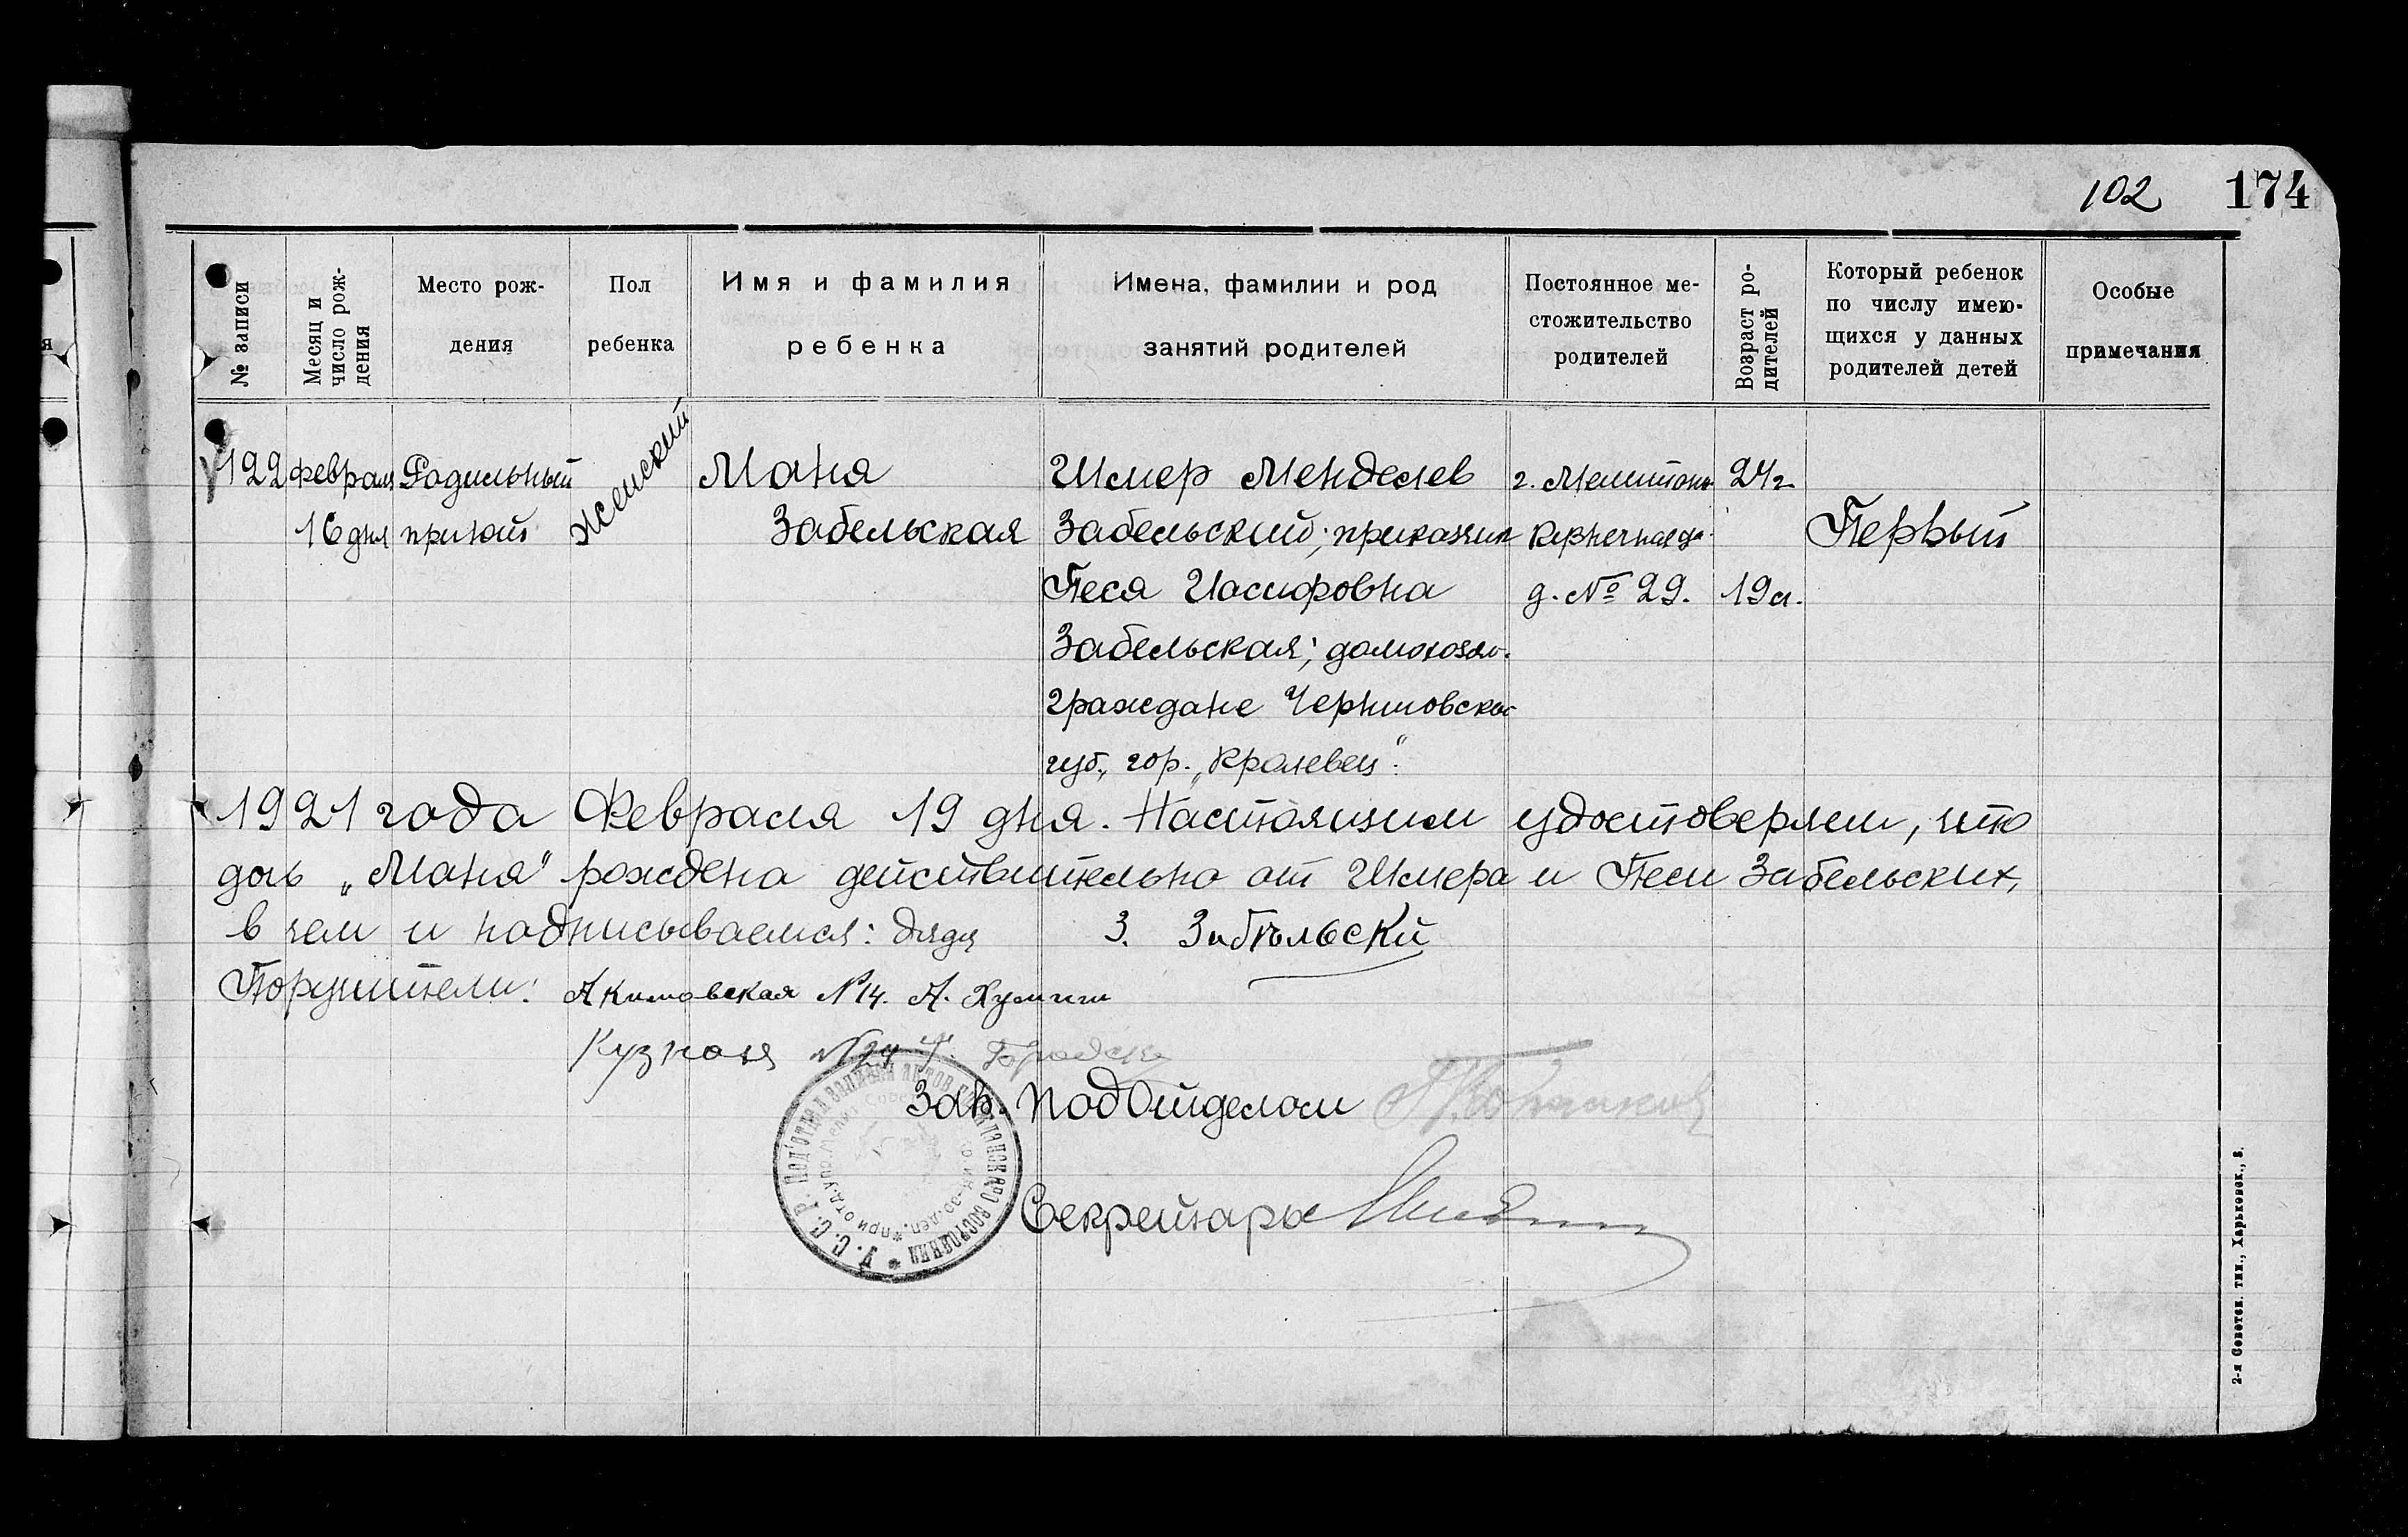 102 174
№ записи
Месяц и число рождения
Место рож-
дения
Пол
ребенка
Имя и фамилия
ребенка
Имена, фамилии и род
занятий родителей
Постоянное ме-
стожительство
родителей
Возраст ро-
дителей
Который ребенок
по числу имею-
щихся у данных
родителей детей
Особые
примечания
122 февраля Родильный женский Маня Шмер Менделев г. Мелитополь 24 г.
16 дня приют Забельская Забельский; приказчик Кузнечная ул. Первый
Песя Иосифовна д. № 29. 19 л.
Забельская; домохозяй.
граждане Черниговской
губ., гор. „Кролевец".
1921 года Февраля 19 дня. Настоящим удостоверяем, что
дочь „Маня" рождена действительно от Шмера и Песи Забельских,
в чем и подписываемся: дядя З. Забѣльский
Поручители: Акимовская № 14. А.
№ 24
Зав. подотделом
Секретарь
У.С.С.Р. Под'отдел записи актов гражданского состояния
2-я Советск. тип., Харьковск., 8.